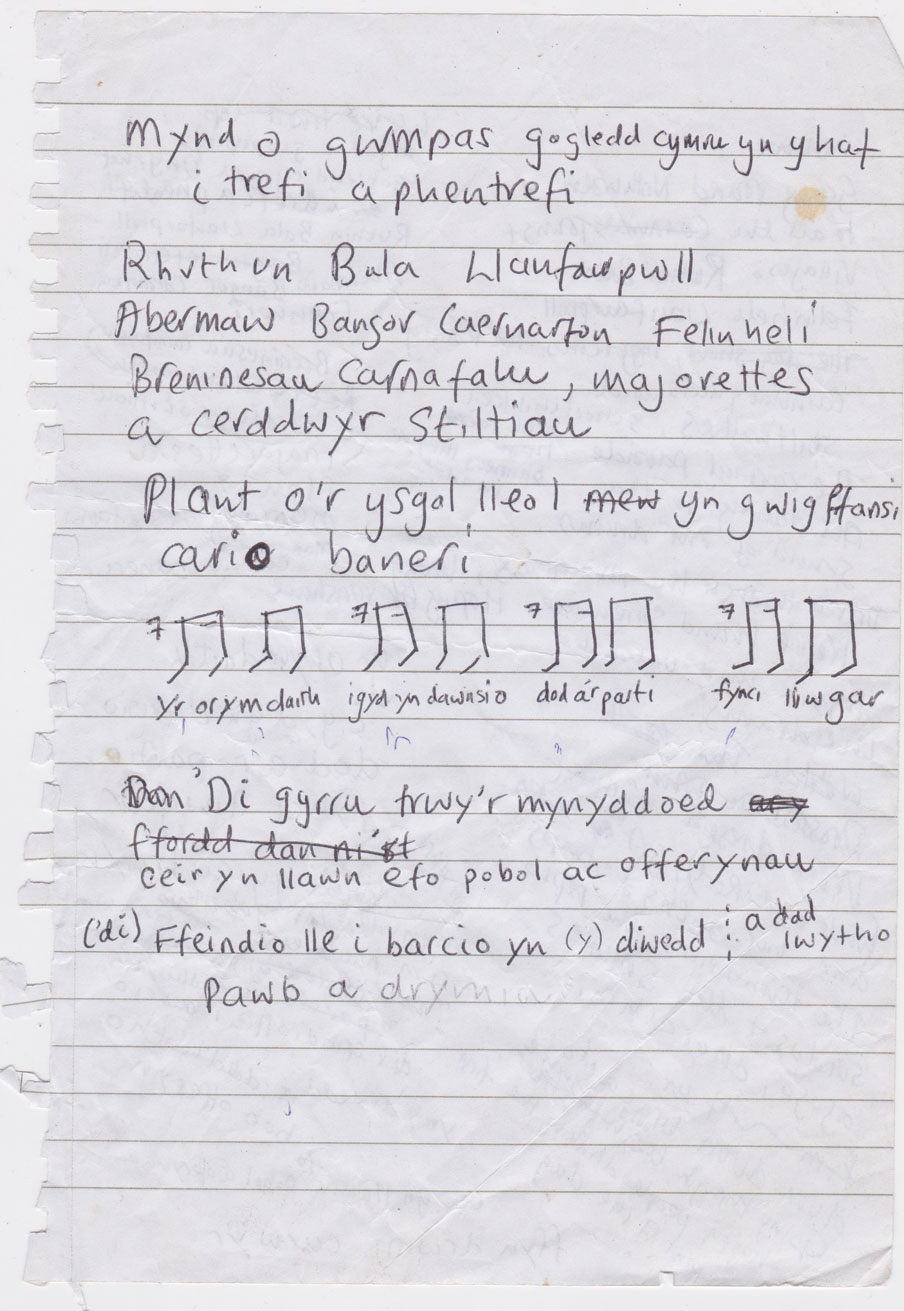 Mynd o gwmpas gogledd cymru yn y haf
i trefi a phentrefi
Rhuthun Bala Llanfairpwll
Abermaw Bangor Caernarfon Felinheli
Breninesau Carnafalu, majorettes
a cerddwyr Stiltiau
Plant o'r ysgol lleol mew yn gwigffansi
cario baneri
7 7 7 7
yr orymdaith igyd yn dawnsio dod a'r parti fynci lliwgar
Dan 'Di gyrru trwy'r mynyddoed any
ffordd dan ni'st
ceir yn llawn efo pobol ac offerynau
('di) Ffeindio lle i barcio yn (y) diwedd ; a dad
lwytho
Pawb a drymiau